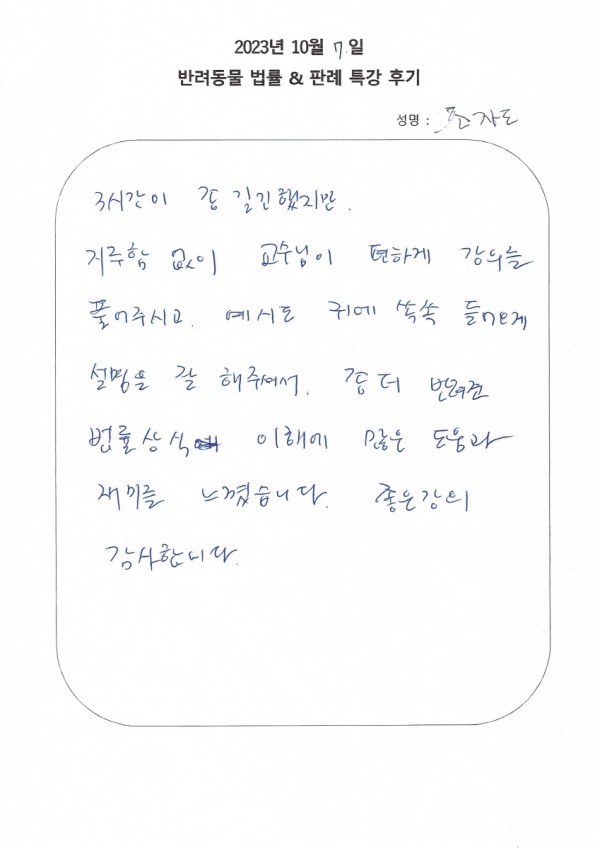 2023년 10월 7.일
반려동물 법률 & 판례 특강 후기
성명 :
3시간이 좀 길긴했지만.
지루함 없이 교수님이 편하게 강의를
풀어주시고. 예시로 귀에 쏙쏙 들어오게
설명을 잘 해주셔서. 좀 더 반려견
법률상식 이해에 많은 도움과
재미를 느꼈습니다. 좋은강의
감사합니다.